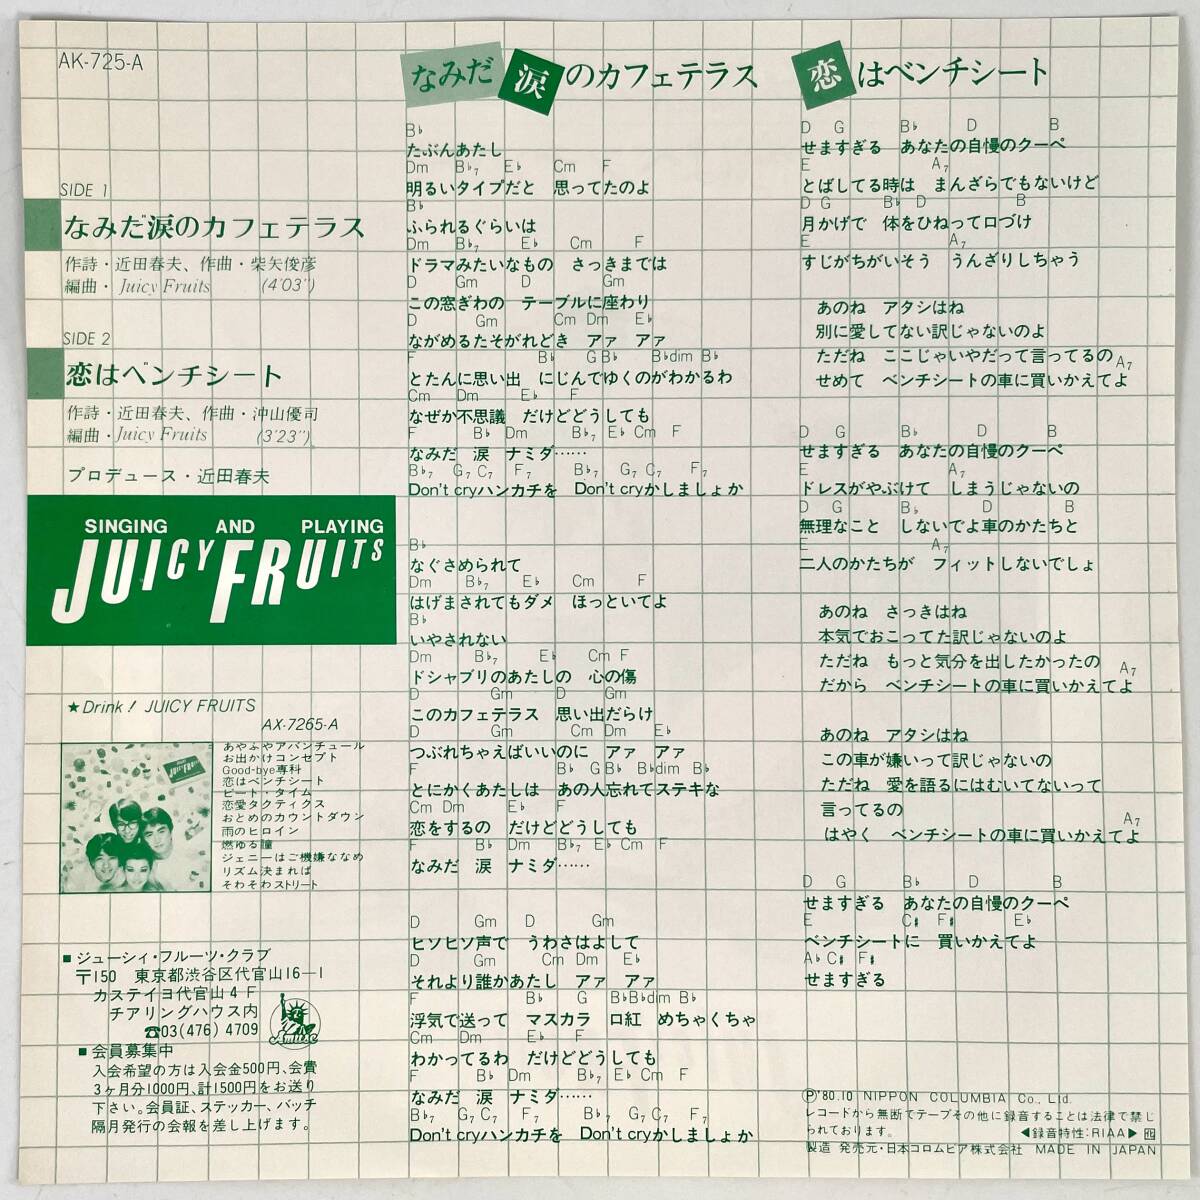 AK-725-A
SIDE 1
なみだ涙のカフェテラス
作詩・近田春夫、作曲・柴矢俊彦
編曲・Juicy Fruits (4'03")
SIDE 2
恋はベンチシート
作詩・近田春夫、作曲・沖山優司
編曲・Juicy Fruits (3'23")
プロデュース・近田春夫
SINGING AND PLAYING
JUICY FRUITS
★Drink! JUICY FRUITS
AX-7265-A
あやふやアバンチュール
お出かけコンセプト
Good-bye専科
恋はベンチシート
ビート・タイム
恋愛タクティクス
おとめのカウントダウン
雨のヒロイン
燃ゆる瞳
ジェニーはご機嫌ななめ
リズム決まれば
そわそわストリート
■ジューシィ・フルーツ・クラブ
〒150 東京都渋谷区代官山16−1
カステイヨ代官山4F
チアリングハウス内
☎03(476)4709
Amuse
■会員募集中
入会希望の方は入会金500円、会費
3ヶ月分1000円、計1500円をお送り
下さい。会員証、ステッカー、バッチ
隔月発行の会報を差し上げます。
なみだ 涙のカフェテラス
B♭
たぶんあたし
Dm B♭7 E♭ Cm F
明るいタイプだと 思ってたのよ
B♭
ふられるぐらいは
Dm B♭7 E♭ Cm F
ドラマみたいなもの さっきまでは
D Gm D Gm
この窓ぎわの テーブルに座わり
D Gm Cm Dm E♭
ながめるたそがれどき アァ アァ
F B♭ G B♭ B♭dim B♭
とたんに思い出 にじんでゆくのがわかるわ
Cm Dm E♭ F
なぜか不思議 だけどどうしても
F B♭ Dm B♭7 E♭ Cm F
なみだ 涙 ナミダ……
B♭7 G7 C7 F7 B♭7 G7 C7 F7
Don't cryハンカチを Don't cryかしましょか
B♭
なぐさめられて
Dm B♭7 E♭ Cm F
はげまされてもダメ ほっといてよ
B♭
いやされない
Dm B♭7 E♭ Cm F
ドシャブリのあたしの 心の傷
D Gm D Gm
このカフェテラス 思い出だらけ
D Gm Cm Dm E♭
つぶれちゃえばいいのに アァ アァ
F B♭ G B♭ B♭dim B♭
とにかくあたしは あの人忘れてステキな
Cm Dm E♭ F
恋をするの だけどどうしても
F B♭ Dm B♭7 E♭ Cm F
なみだ 涙 ナミダ……
D Gm D Gm
ヒソヒソ声で うわさはよして
D Gm Cm Dm E♭
それより誰かあたし アァ アァ
F B♭ G B♭B♭dim B♭
浮気で送って マスカラ 口紅 めちゃくちゃ
Cm Dm E♭ F
わかってるわ だけどどうしても
F B♭ Dm B♭7 E♭ Cm F
なみだ 涙 ナミダ……
B♭7 G7 C7 F7 B♭7 G7 C7 F7
Don't cryハンカチを Don't cryかしましょか
恋はベンチシート
D G B♭ D B
せますぎる あなたの自慢のクーペ
E A7
とばしてる時は まんざらでもないけど
D G B♭ D B
月かげで 体をひねって口づけ
E A7
すじがちがいそう うんざりしちゃう
あのね アタシはね
別に愛してない訳じゃないのよ
ただね ここじゃいやだって言ってるの A7
せめて ベンチシートの車に買いかえてよ
D G B♭ D B
せますぎる あなたの自慢のクーペ
E A7
ドレスがやぶけて しまうじゃないの
D G B♭ D B
無理なこと しないでよ車のかたちと
E A7
二人のかたちが フィットしないでしょ
あのね さっきはね
本気でおこってた訳じゃないのよ
ただね もっと気分を出したかったの A7
だから ベンチシートの車に買いかえてよ
あのね アタシはね
この車が嫌いって訳じゃないの
ただね 愛を語るにはむいてないって
言ってるの A7
はやく ベンチシートの車に買いかえてよ
D G B♭ D B
せますぎる あなたの自慢のクーペ
E C♯ F♯ E♭
ベンチシートに 買いかえてよ
A♭ C♯ F♯
せますぎる
Ⓟ'80.10 NIPPON COLUMBIA Co., Ltd.
レコードから無断でテープその他に録音することは法律で禁じ
られております。 ◀録音特性:RIAA▶
製造 発売元・日本コロムビア株式会社 MADE IN JAPAN